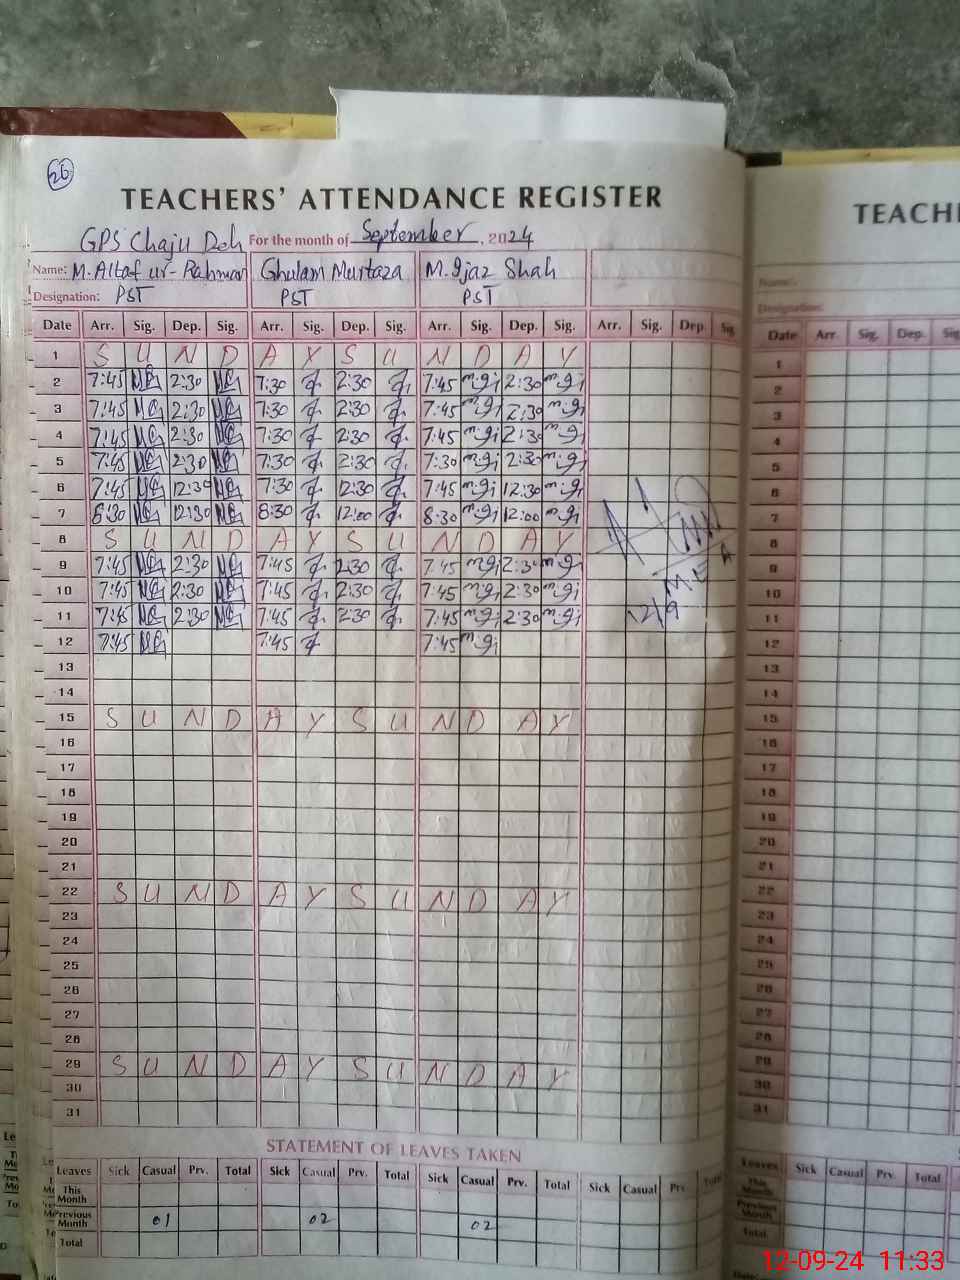 26
TEACHERS' ATTENDANCE REGISTER
GPS Chaju Deh For the month of September, 2024
Name: M. Altaf ur-Rahman Ghulam Murtaza M. Ijaz Shah
Designation: PST PST PST
Date Arr. Sig. Dep. Sig. Arr. Sig. Dep. Sig. Arr. Sig. Dep. Sig. Arr. Sig. Dep. Sig.
1 S U N D A Y S U N D A Y
2 7:45 2:30 7:30 2:30 7:45 2:30
3 7:45 2:30 7:30 2:30 7:45 2:30
4 7:45 2:30 7:30 2:30 7:45 2:30
5 7:45 2:30 7:30 2:30 7:30 2:30
6 7:45 12:30 7:30 12:30 7:45 12:30
7 8:30 12:30 8:30 12:00 8:30 12:00
8 S U N D A Y S U N D A Y
9 7:45 2:30 7:45 2:30 7:45 2:30
10 7:45 2:30 7:45 2:30 7:45 2:30
11 7:45 2:30 7:45 2:30 7:45 2:30
12 7:45 7:45 7:45
MEA
12/9
13
14
15 S U N D A Y S U N D A Y
16
17
18
19
20
21
22 S U N D A Y S U N D A Y
23
24
25
26
27
28
29 S U N D A Y S U N D A Y
30
31
STATEMENT OF LEAVES TAKEN
Leaves Sick Casual Prv. Total Sick Casual Prv. Total Sick Casual Prv. Total Sick Casual Prv. Total
This Month
Previous Month 01 02 02
Total
TEACH
Name:
Designation:
Date Arr. Sig. Dep. Sig.
1
2
3
4
5
6
7
8
9
10
11
12
13
14
15
16
17
18
19
20
21
22
23
24
25
26
27
28
29
30
31
Leaves Sick Casual Prv. Total
This Month
Previous Month
Total
12-09-24 11:33